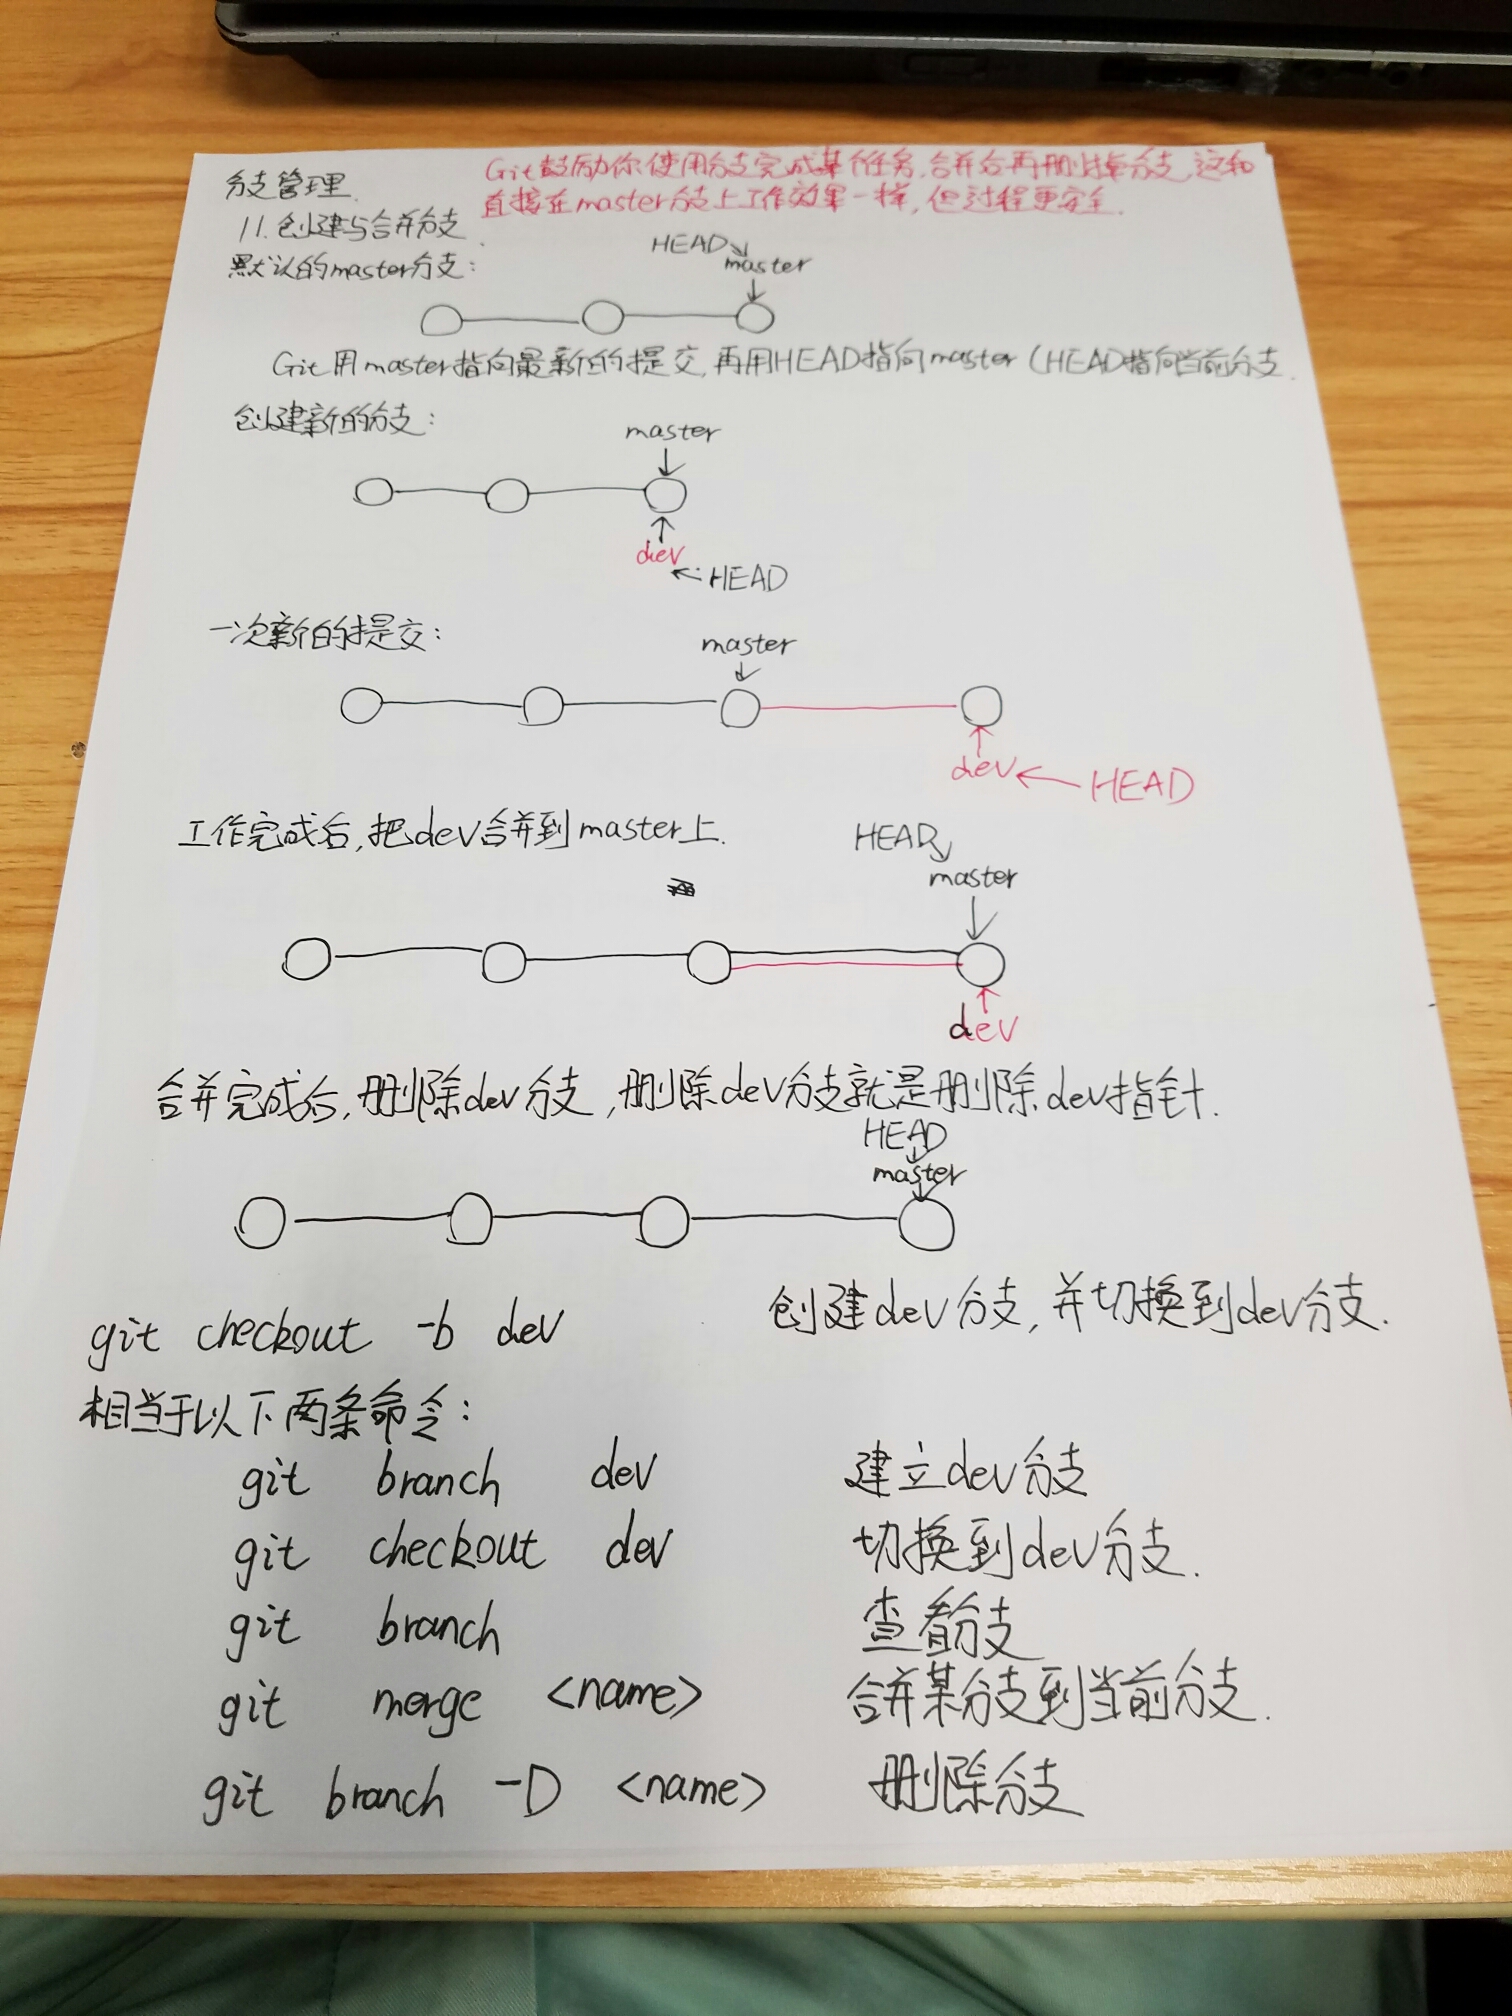 分支管理.
Git鼓励你使用分支完成某个任务,合并后再删掉分支,这和
直接在master分支上工作效果一样,但过程更安全.
11.创建与合并分支.
默认的master分支:
HEAD
master
Git用master指向最新的提交,再用HEAD指向master(HEAD指向当前分支.
创建新的分支:
master
dev
HEAD
一次新的提交:
master
dev
HEAD
工作完成后,把dev合并到master上.
HEAD
master
dev
合并完成后,删除dev分支,删除dev分支就是删除dev指针.
HEAD
master
git checkout -b dev 创建dev分支,并切换到dev分支.
相当于以下两条命令:
git branch dev 建立dev分支
git checkout dev 切换到dev分支.
git branch 查看分支
git merge <name> 合并某分支到当前分支.
git branch -D <name> 删除分支